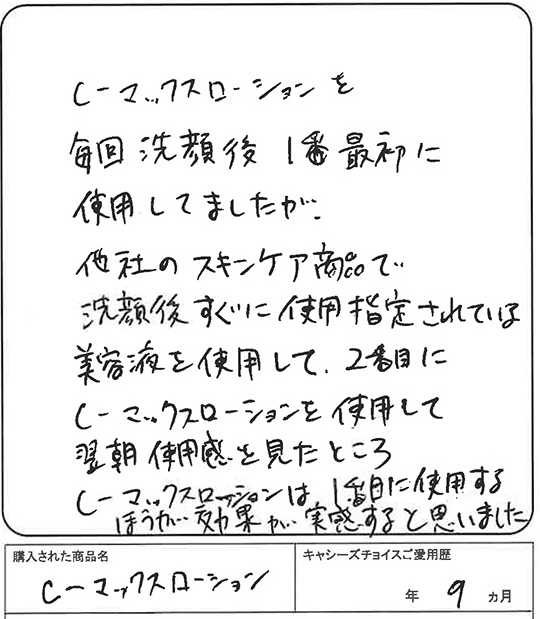 Cーマックスローションを
毎回洗顔後1番最初に
使用してましたが、
他社のスキンケア商品で
洗顔後すぐに使用指定されている
美容液を使用して、2番目に
Cーマックスローションを使用して
翌朝使用感を見たところ
Cーマックスローションは1番目に使用する
ほうが効果が実感すると思いました
購入された商品名
Cーマックスローション
キャシーズチョイスご愛用歴
年 9 ヵ月